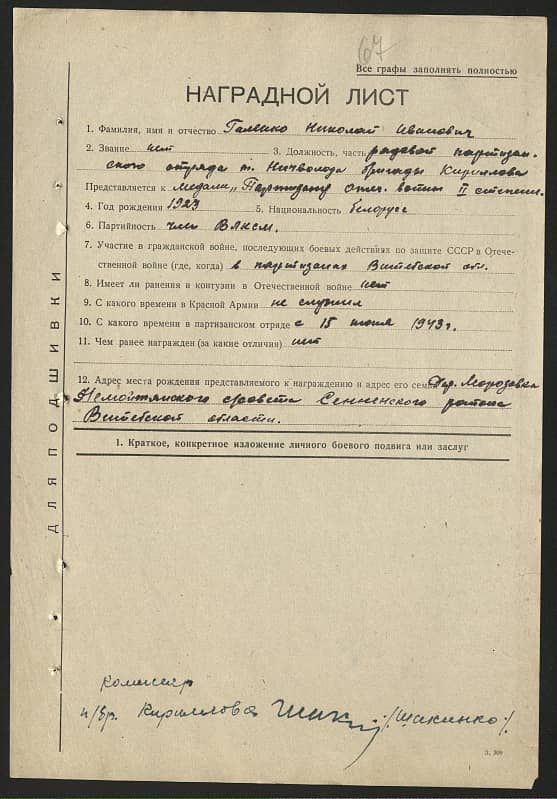 67
Все графы заполнять полностью
НАГРАДНОЙ ЛИСТ
1. Фамилия, имя и отчество Галенко Николай Иванович
2. Звание нет 3. Должность, часть рядовой партизан-
ского отряда т. Ничволода бригады Кириллова
Представляется к медали „Партизану отеч. войны II степени.
4. Год рождения 1923 5. Национальность белорус
6. Партийность член ВЛКСМ.
7. Участие в гражданской войне, последующих боевых действиях по защите СССР и Отече-
ственной войне (где, когда) в партизанах Витебской обл.
8. Имеет ли ранения и контузии в Отечественной войне нет
9. С какого времени в Красной Армии не служил
10. С какого времени в партизанском отряде с 15 июня 1943 г.
11. Чем ранее награжден (за какие отличия) нет
12. Адрес места рождения представляемого к награждению и адрес его семьи Дер. Морозовка
Немойтянского с/совета Сенненского района
Витебской области.
1. Краткое, конкретное изложение личного боевого подвига или заслуг
ДЛЯ ПОДШИВКИ
комиссар
п/бр. Кириллова /Шакинко/.
З. 309